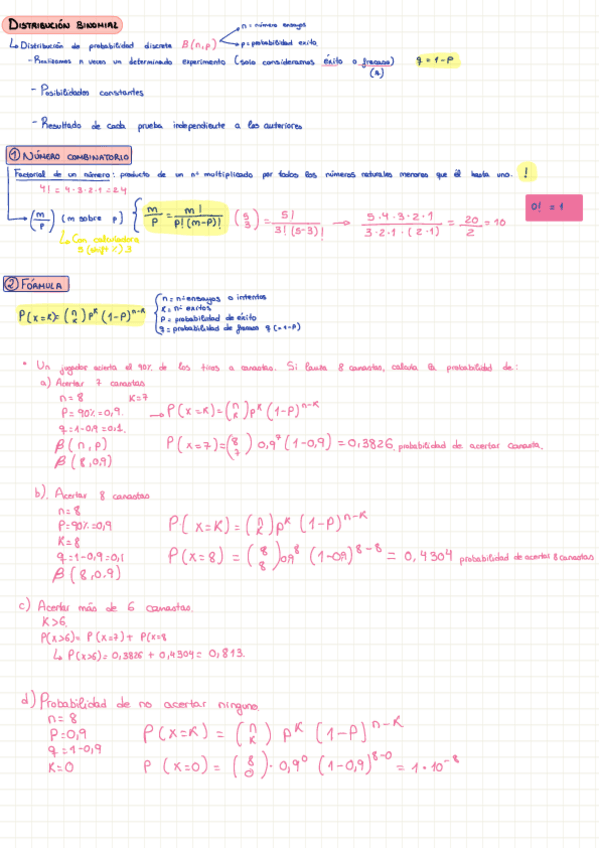 DISTRIBUCIÓN BINOMIAL
n = número ensayos
↳ Distribución de probabilidad discreta B(n,p)
p = probabilidad exito
- Realizamos n veces un determinado experimento (solo consideramos éxito o fracaso) q = 1-P
- Posibilidades constantes
- Resultado de cada prueba independiente a las auteriores
① NÚMERO COMBINATORIO
Factorial de un número: producto de un nº multiplicado por todos los números naturales menores que él hasta uno. !
4! = 4·3·2·1 = 24
0! = 1
(m/p) (m sobre p) { m/p = m!/p!(m-p)! (5/3) 5!/3!(5-3)! → 5·4·3·2·1/3·2·1·(2·1) = 20/2 = 10
↳ Con calculadora
5 (shift ÷) 3
② FÓRMULA
n = nº ensayos o intentos
P(x=K) = (n/K) p^K (1-P)^n-K
K = nº exitos
P = probabilidad de éxito
q = probabilidad de fracaso q (=1-p)
* Un jugador acierta el 90% de los tiros a canastas. Si lanza 8 canastas, calcula la probabilidad de:
a) Acertar 7 canastas
n=8 K=7
P= 90% = 0,9. → P(x=K) = (n/K) p^K (1-P)^n-K
q = 1-0,9 = 0,1.
β(n,p) P(x=7) = (8/7) 0,9^7 (1-0,9) = 0,3826. probabilidad de acertar canasta.
β(8,0,9)
b). Acertar 8 canastas
n=8
P=90% = 0,9 P(x=K) = (n/K) p^K (1-P)^n-K
K=8
q=1-0,9=0,1 P(x=8) = (8/8) 0,9^8 (1-0,9)^8-8 = 0,4304 probabilidad de acertar 8 canastas
β(8,0,9)
c) Acertar más de 6 canastas.
K>6.
P(x>6) = P(x=7) + P(x=8
↳ P(x>6) = 0,3826 + 0,4304 = 0,813.
d) Probabilidad de no acertar ninguno.
n=8
P=0,9 P(x=K) = (n/K) p^K (1-P]^n-K
q=1-0,9
K=0 P (x=0) = (8/0) · 0,9^0 (1-0,9)^8-0 = 1·10^-8